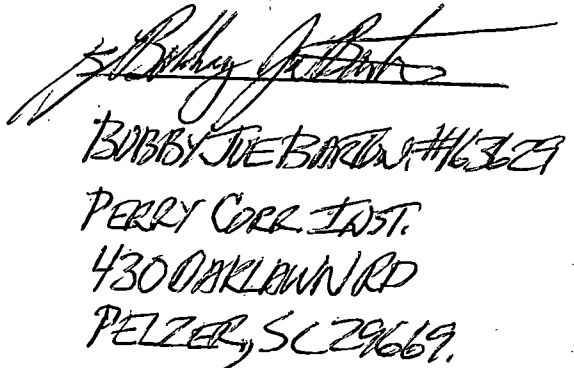 s/ Bobby Joe Barton
BOBBY JOE BARTON, #163629
PERRY CORR. INST.
430 OAKLAWN RD
PELZER, SC 29669.